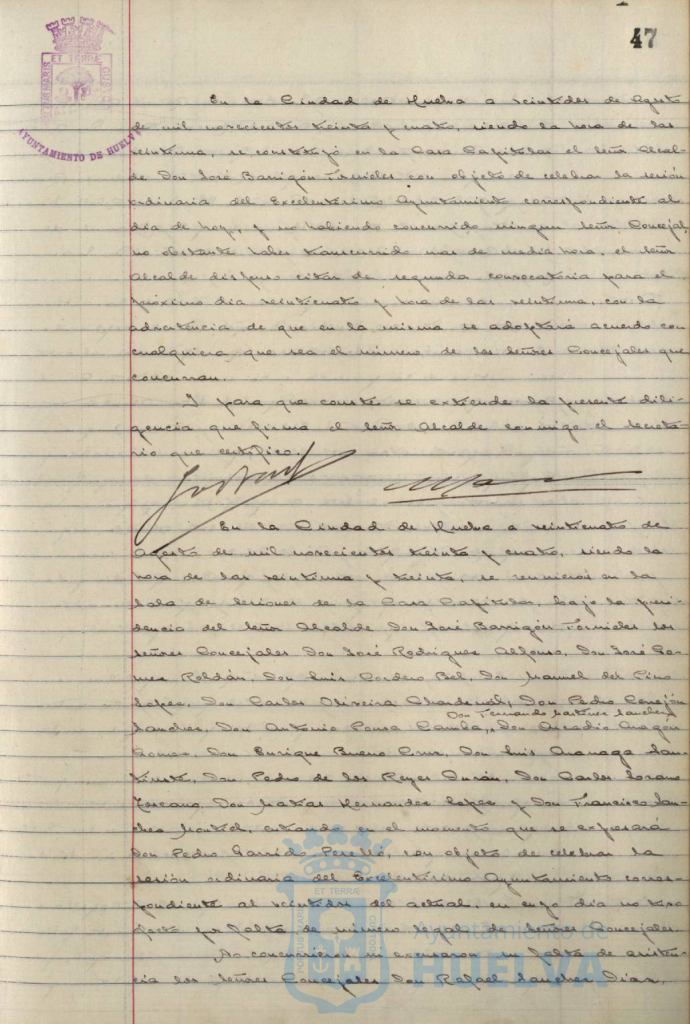 47
PORTUS MARIS ET TERRÆ CUSTODIA
AYUNTAMIENTO DE HUELVA
En la Ciudad de Huelva a veintidos de Agosto
de mil novecientos treinta y cuatro, siendo la hora de las
veintiuna, se constituyó en la Casa Capitular el Señor Alcal-
de Don José Barrigón Fornieles con objeto de celebrar la sesión
ordinaria del Excelentísimo Ayuntamiento correspondiente al
dia de hoy, y no habiendo concurrido ningun Señor Concejal,
no obstante haber transcurrido mas de media hora, el Señor
Alcalde dispuso citar de segunda convocatoria para el
próximo dia veinticuatro y hora de las veintiuna, con la
advertencia de que en la misma se adoptará acuerdo con
cualquiera que sea el número de los Señores Concejales que
concurran.
Y para que conste se extiende la presente dili-
gencia que firma el Señor Alcalde conmigo el Secreta-
rio que certifico.
En la Ciudad de Huelva a veinticuatro de
Agosto de mil novecientos treinta y cuatro, siendo la
hora de las veintiuna y treinta, se reunieron en la
Sala de Sesiones de la Casa Capitular, bajo la presi-
dencia del Señor Alcalde Don José Barrigón Fornieles los
Señores Concejales Don José Rodriguez Alfonso, Don José Go-
mez Roldán, Don Luis Cordero Bel, Don Manuel del Pino
Lopez, Don Carlos Oliveira Chardenal, Don Pedro Cerejón
Don Fernando Martinez Sanchez
Sanchez, Don Antonio Ponsa Camba, Don Arcadio Aragón
Gomez, Don Enrique Bueno Cruz, Don Luis Aranaga San-
, Don Pedro de los Reyes Durán, Don Carlos Lozano
Toscano, Don Matias Hernandez Lopez y Don Francisco San-
chez , entrando en el momento que se expresará
Don Pedro Garrido Perelló, con objeto de celebrar la
sesión ordinaria del Excelentísimo Ayuntamiento corres-
pondiente al veintidos del actual, en cuyo dia no tuvo
efecto por falta de número legal de Señores Concejales.
No concurrieron ni excusaron su falta de asisten-
cia los Señores Concejales Don Rafael Sanchez Diaz,
PORTUS MARIS ET TERRÆ CUSTODIA
Ayuntamiento de
HUELVA